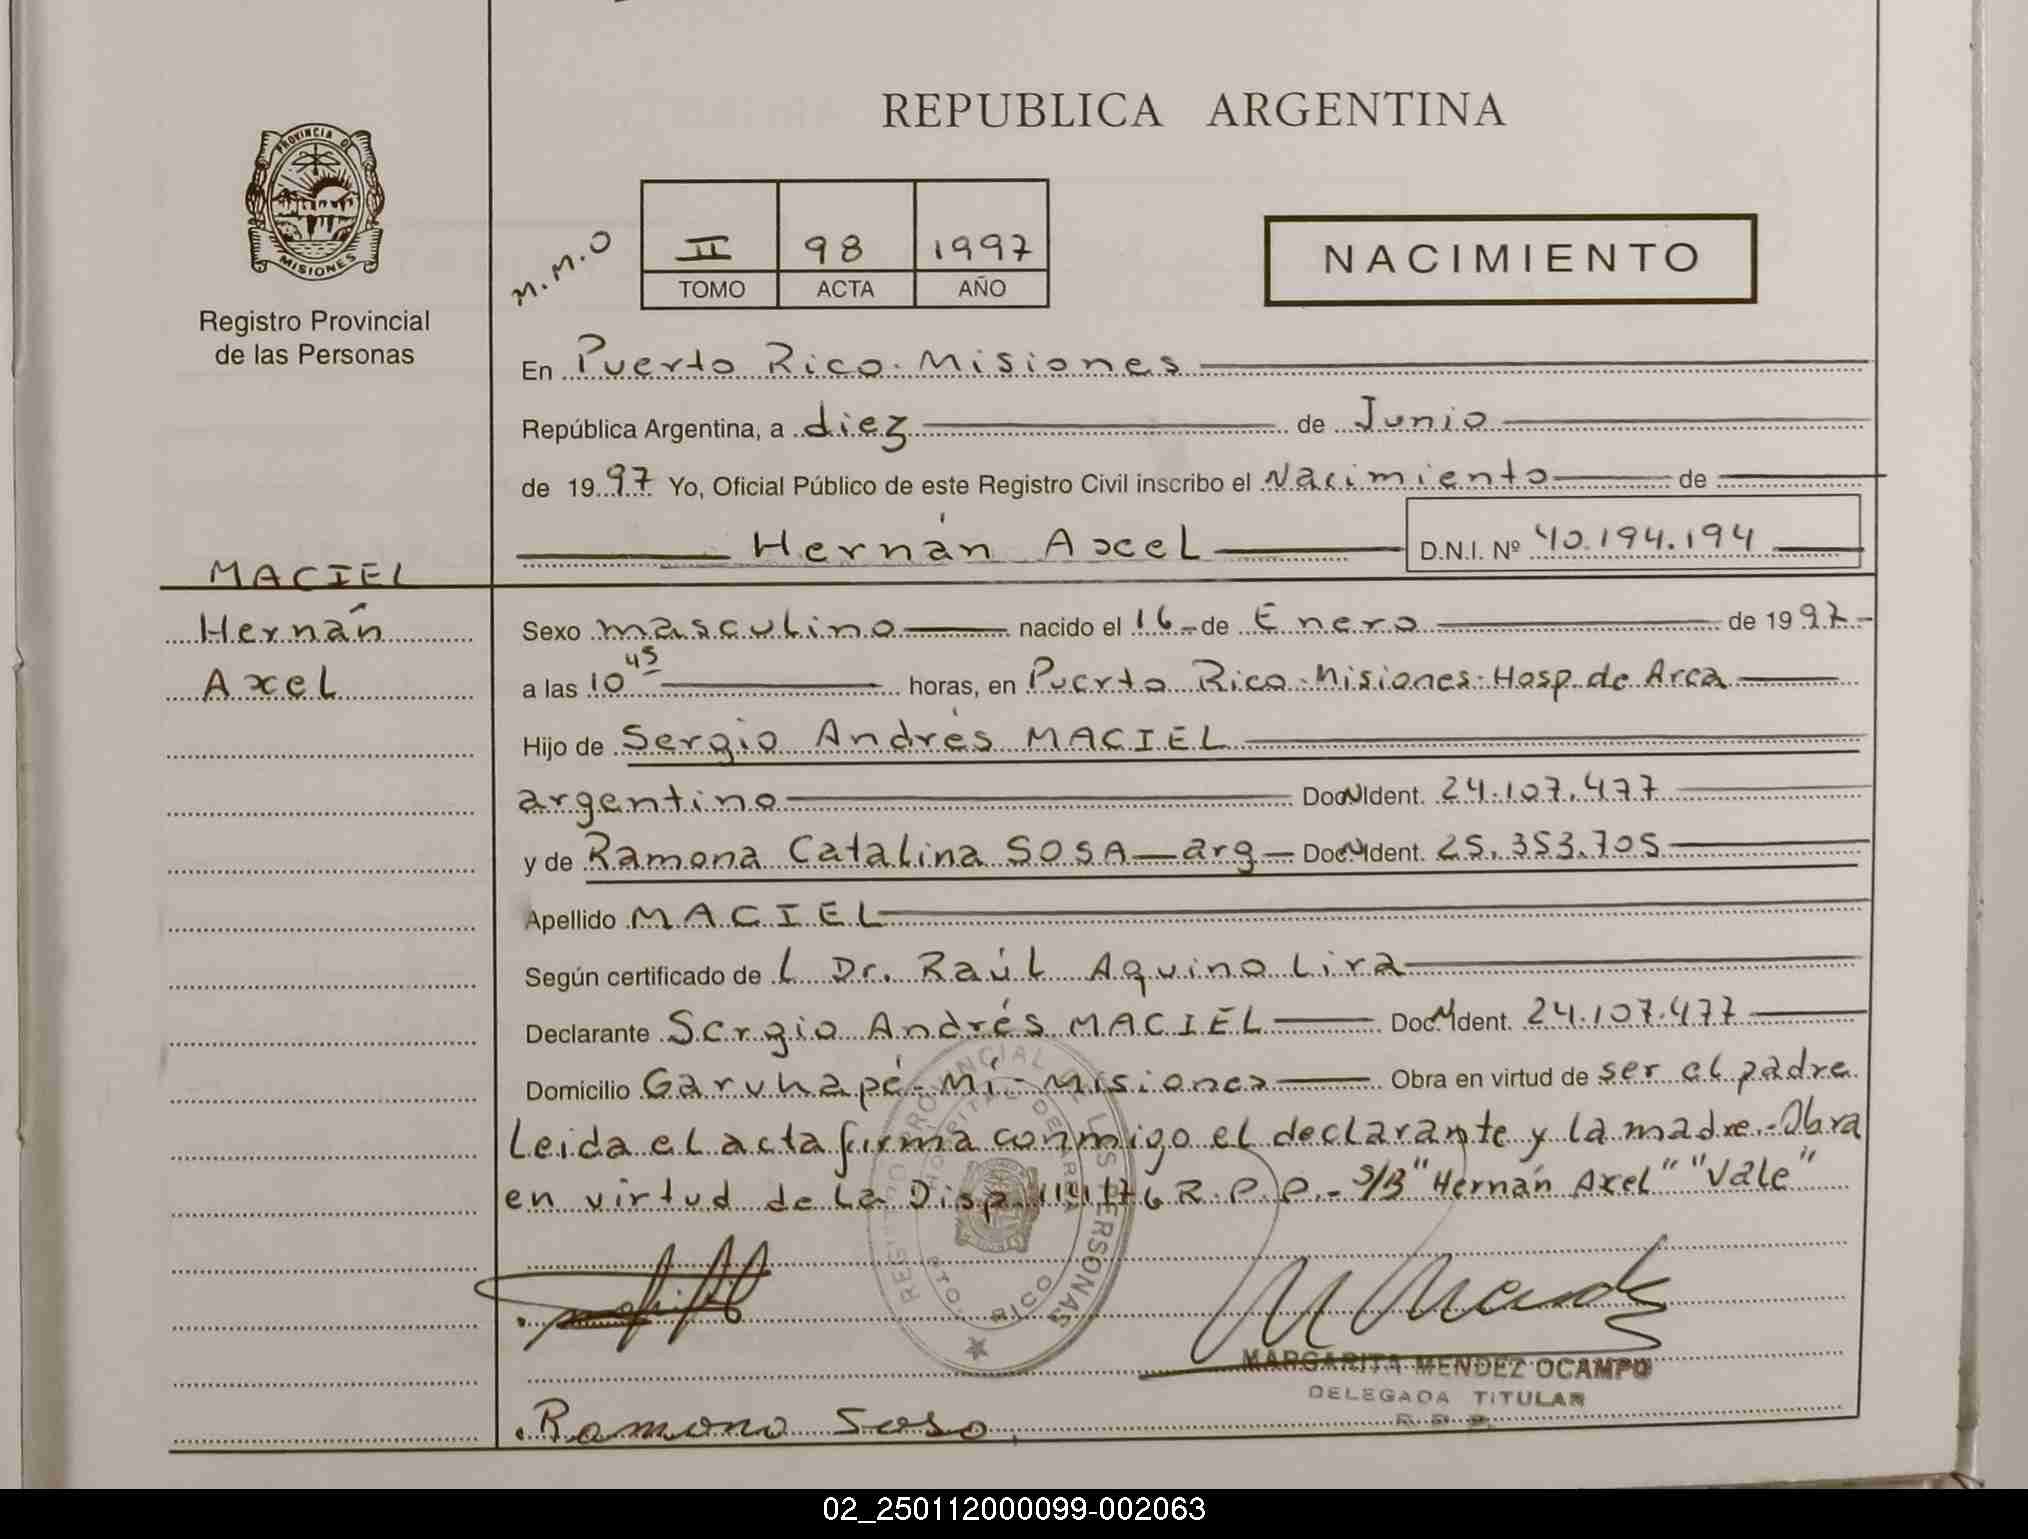 REPUBLICA ARGENTINA
PROVINCIA DE
MISIONES
Registro Provincial
de las Personas
M.M.O
II 98 1997
TOMO ACTA AÑO
NACIMIENTO
En Puerto Rico. Misiones
República Argentina, a diez de Junio
de 1997 Yo, Oficial Público de este Registro Civil inscribo el Nacimiento de
Hernán Axel D.N.I. Nº 40.194.194
MACIEL
Hernán
Axel
Sexo masculino nacido el 16 de Enero de 1997
a las 10 45 horas, en Puerto Rico. Misiones. Hosp. de Area
Hijo de Sergio Andrés MACIEL
argentino Doc N Ident. 24.107.477
y de Ramona Catalina SOSA - arg - Doc N Ident. 25.353.705
Apellido MACIEL
Según certificado de l Dr. Raúl Aquino Lira
Declarante Sergio Andrés MACIEL Doc. N Ident. 24.107.477
Domicilio Garuhapé - Mí - Misiones Obra en virtud de ser el padre
Leida el acta firma conmigo el declarante y la madre.- Obra
en virtud de la Disp. 114/76 R.P.P.- S/B "Hernán Axel" "Vale"
REGISTRO PROVINCIAL DE LAS PERSONAS
HOSPITAL DE AREA
PTO RICO
MARGARITA MENDEZ OCAMPO
DELEGADA TITULAR
R.P.P.
Ramona Sosa
02_250112000099-002063